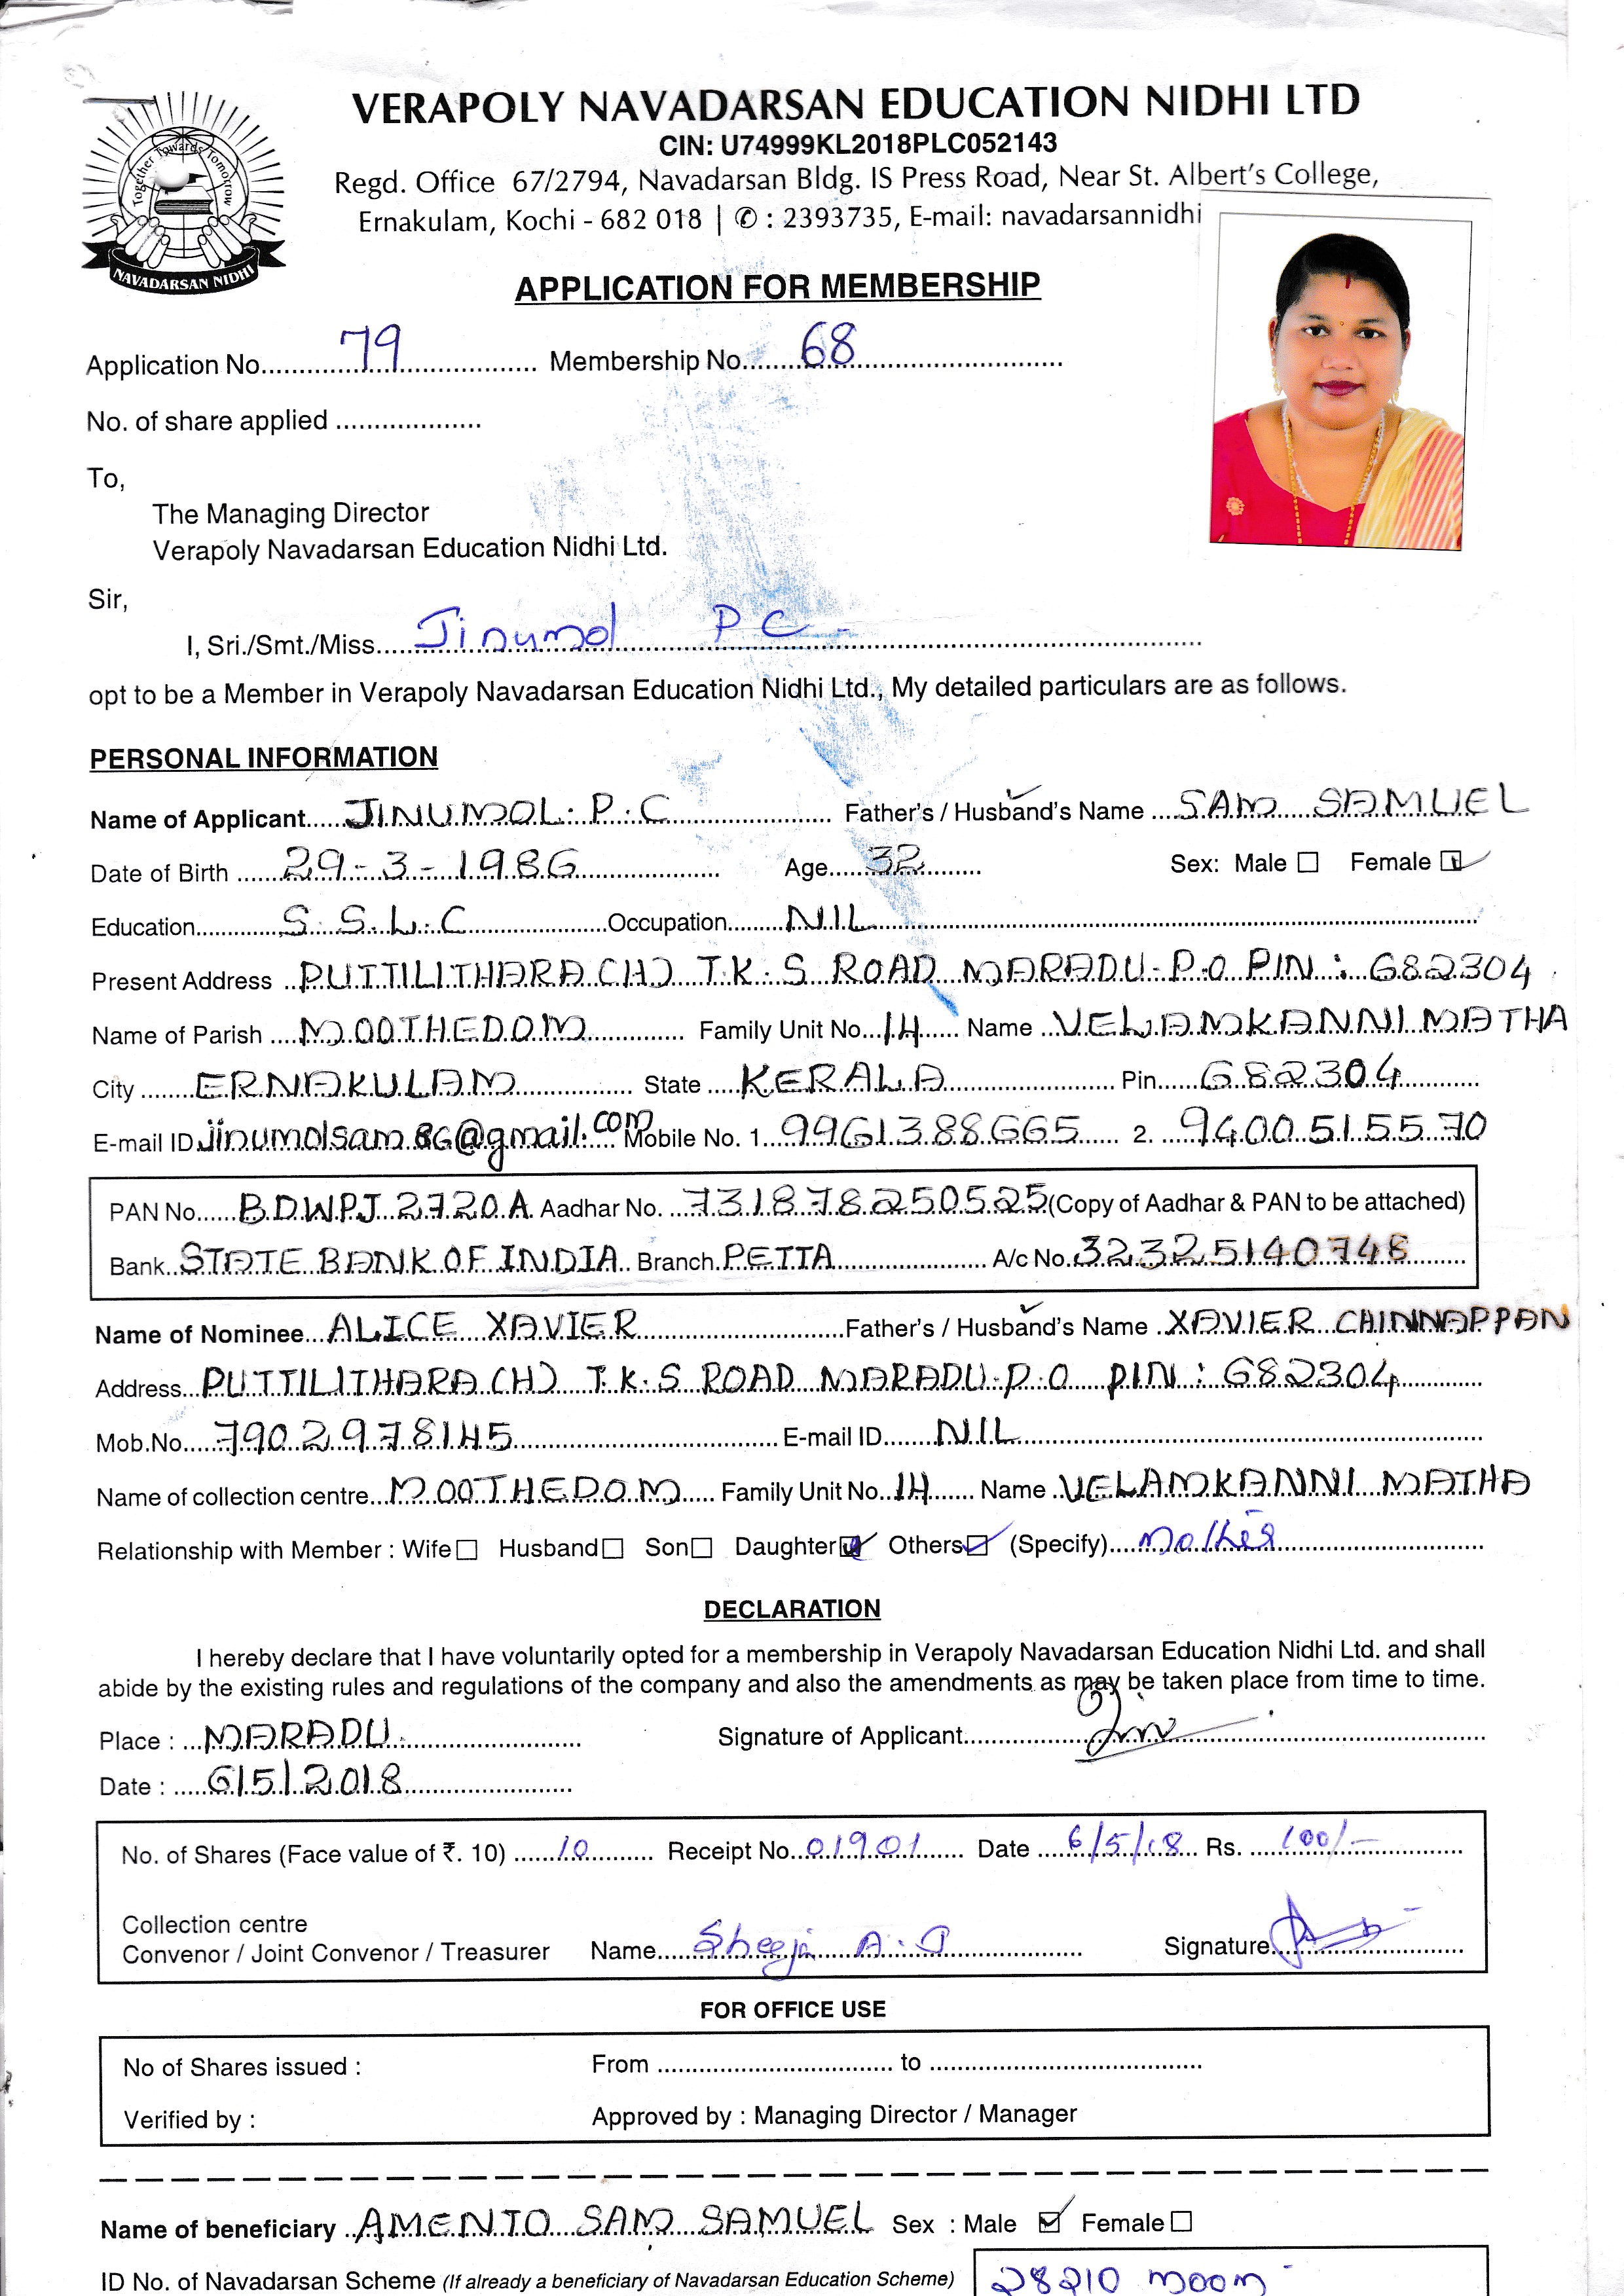 VERAPOLY NAVADARSAN EDUCATION NIDHI LTD
CIN: U74999KL2018PLC052143
Regd. Office 67/2794, Navadarsan Bldg. IS Press Road, Near St. Albert's College,
Ernakulam, Kochi - 682 018 | ✆ : 2393735, E-mail: navadarsannidhi
Together Towards Tomorrow
NAVADARSAN NIDHI
APPLICATION FOR MEMBERSHIP
Application No. 79 Membership No. 68
No. of share applied
To,
The Managing Director
Verapoly Navadarsan Education Nidhi Ltd.
Sir,
I, Sri./Smt./Miss. Jinumol P C -
opt to be a Member in Verapoly Navadarsan Education Nidhi Ltd., My detailed particulars are as follows.
PERSONAL INFORMATION
Name of Applicant JINUMOL. P. C Father's / Husband's Name SAM SAMUEL
Date of Birth 29-3-1986 Age 32 Sex: Male ☐ Female ☑
Education S.S.L.C Occupation NIL
Present Address PUTTILITHARA (H) T.K.S ROAD MARADU.P.O PIN: 682304
Name of Parish MOOTHEDOM Family Unit No. 14 Name VELAMKANNI MATHA
City ERNAKULAM State KERALA Pin 682304
E-mail ID jinumolsam86@gmail.com Mobile No. 1. 9961388665 2. 9400515570
PAN No. BDWPJ2720A Aadhar No. 731878250525 (Copy of Aadhar & PAN to be attached)
Bank STATE BANK OF INDIA Branch PETTA A/c No. 32325140748
Name of Nominee ALICE XAVIER Father's / Husband's Name XAVIER CHINNAPPAN
Address PUTTILITHARA (H) T.K.S ROAD MARADU.P.O PIN: 682304
Mob.No. 7902978145 E-mail ID NIL
Name of collection centre MOOTHEDOM Family Unit No. 14 Name VELAMKANNI MATHA
Relationship with Member : Wife ☐ Husband ☐ Son ☐ Daughter ☑ Others ☑ (Specify) Mother
DECLARATION
I hereby declare that I have voluntarily opted for a membership in Verapoly Navadarsan Education Nidhi Ltd. and shall
abide by the existing rules and regulations of the company and also the amendments as may be taken place from time to time.
Place : MARADU Signature of Applicant
Date : 6/5/2018
No. of Shares (Face value of ₹. 10) 10 Receipt No. 01901 Date 6/5/18 Rs. 100/-
Collection centre
Convenor / Joint Convenor / Treasurer Name Sheeja A. Signature
FOR OFFICE USE
No of Shares issued : From to
Verified by : Approved by : Managing Director / Manager
Name of beneficiary AMENTO SAM SAMUEL Sex : Male ☑ Female ☐
ID No. of Navadarsan Scheme (If already a beneficiary of Navadarsan Education Scheme) 28210 moom